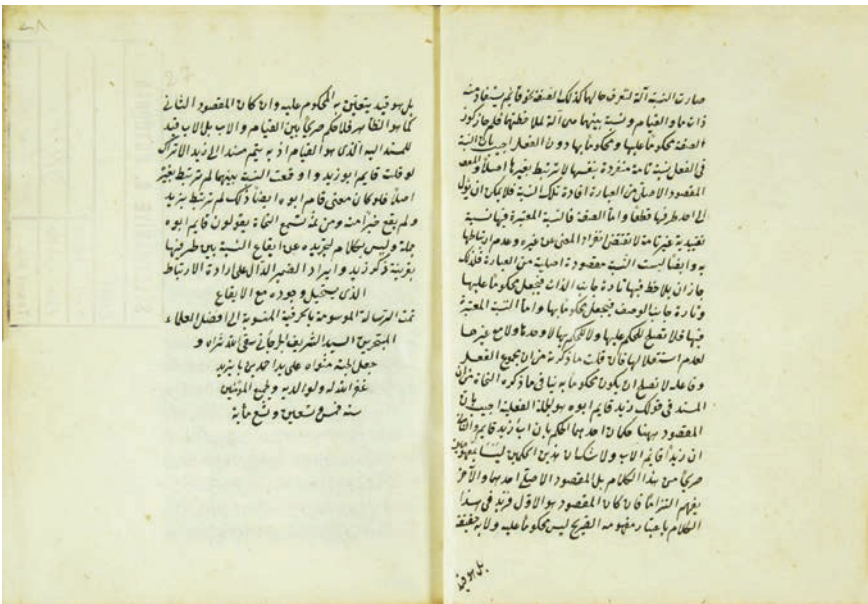 صارت النسبة آلة لتعرف حالها كذلك الصفة نحو قايم يستفاد منه
ذات ما والقيام ونسبة بينهما هي آلة لملاحظتها فلم جاز كون
الصفة محكوما عليها ومحكوما بها دون الفعل اجيب بان النسبة
في الفعل نسبة تامة منفردة بنفسها لا ترتبط بغيرها اصلا و
المقصود الاصلى من العبارة افادة تلك النسبة فلا يمكن ان يؤل
الى احد طرفيها قطعا واما الصفة فالنسبة المعتبرة فيها نسبة
تقييدية غير تامة لا تقتضى انفراد المعنى عن غيره وعدم ارتباطها
به وايضا ليست النسبة مقصودة اصلية من العبارة فلذلك
جاز ان يلاحظ فيها تارة جانب الذات فيجعل محكوما عليها
وتارة جانب الوصف فيجعل محكوما بها واما النسبة المعتبرة
فيها فلا تصلح للحكم عليها ولا للحكم بها لا وحدها ولا مع غيرها
لعدم استقلالها فان قلت ما ذكرته من ان مجموع الفعل
وفاعله لا تصلح ان يكون محكوما به ينافى ما ذكره النحاة من ان
المسند في قولك زيد قايم ابوه هو الجملة الفعلية اجيب بان
المقصود ههنا حكمان احدهما الحكم بان اب زيد قايم والثاني
ان زيدا قايم الاب ولا شك ان هذين الحكمين ليسا بمفهومين
صريحا من هذا الكلام بل المقصود الاصلى احدهما والآخر
يفهم التزاما فان كان المقصود هو الاول فزيد في هذا
الكلام باعتبار مفهومه الصريح ليس محكوما عليه ولا به حقيقة
بل هو قيد
بل هو قيد يتعين به المحكوم عليه وان كان المقصود الثاني
كما هو الظاهر فلا حكم صريحا بين القيام والاب بل الاب قيد
للمسند اليه الذى هو القيام اذ به يتم مسندا الى زيد الا ترى انك
لو قلت قايم ابو زيد واوقعت النسبة بينهما لم ترتبط بغير
اصلا فلو كان معنى قام ابوه ايضا ذلك لم ترتبط بزيد
ولم يقع خبرا منه ومن ثمة تسمع النحاة يقولون قايم ابوه
جملة وليس بكلام لتجريده عن ايقاع النسبة بين طرفيها
بقرينة ذكر زيد وايراد الضمير الدال على ارادة الارتباط
الذى يستحيل وجوده مع الايقاع
تمت الرسالة الموسومة بالحرفية المنسوبة الى افضل العلماء
المتبحرين السيد الشريف الجرجانى سقى الله ثراه و
جعل الجنة مثواه على يد احمد بن بايزيد
غفر الله له ولوالديه ولجميع المؤمنين
سنه خمس وتسعين وتسع مايه